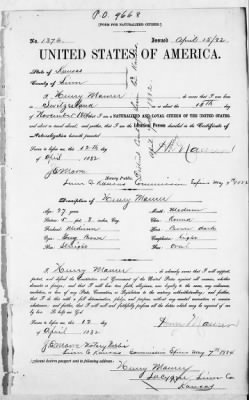 P.O. 9668
[FORM FOR NATURALIZED CITIZEN.]
No. 1376. Issued April 15/82
UNITED STATES OF AMERICA.
State of Kansas
County of Linn
I Henry Maurer do swear that I was born in
Switzerland on or about the 16th day of
November that I am a NATURALIZED AND LOYAL CITIZEN OF THE UNITED STATES,
and about to travel abroad; and further, that I am the IDENTICAL PERSON described in the Certificate of
Naturalization herewith presented.
Sworn to before me, this 12th day
of April 1882
Notary Public.
Linn Co Kansas Commission Expires May 7th
Description of Henry Maurer
Age: 27 years Mouth: Medium
Stature: 5 feet 8 inches, Eng. Chin: Round
Forehead: Medium Hair: Brown dark
Eyes: Complexion: Light
Nose: Straight Face: Oval
I, Henry Maurer, do solemnly swear that I will support,
protect, and defend the Constitution and Government of the United States against all enemies, whether
domestic or foreign; and that I will bear true faith, allegiance, and loyalty to the same, any ordinance,
resolution, or law of any State, Convention, or Legislature to the contrary notwithstanding; and further,
that I do this with a full determination, pledge, and purpose, without any mental reservation or evasion
whatsoever; and further, that I will well and faithfully perform all the duties which may be required of me
by law: So help me God.
Sworn to before me, this 12 day
of April 1882
Notary Public
Linn Co Kansas Commission Expires May 7th 1884
Applicant desires passport sent to following address:
Henry Maurer
Lacygne Linn Co
Kansas